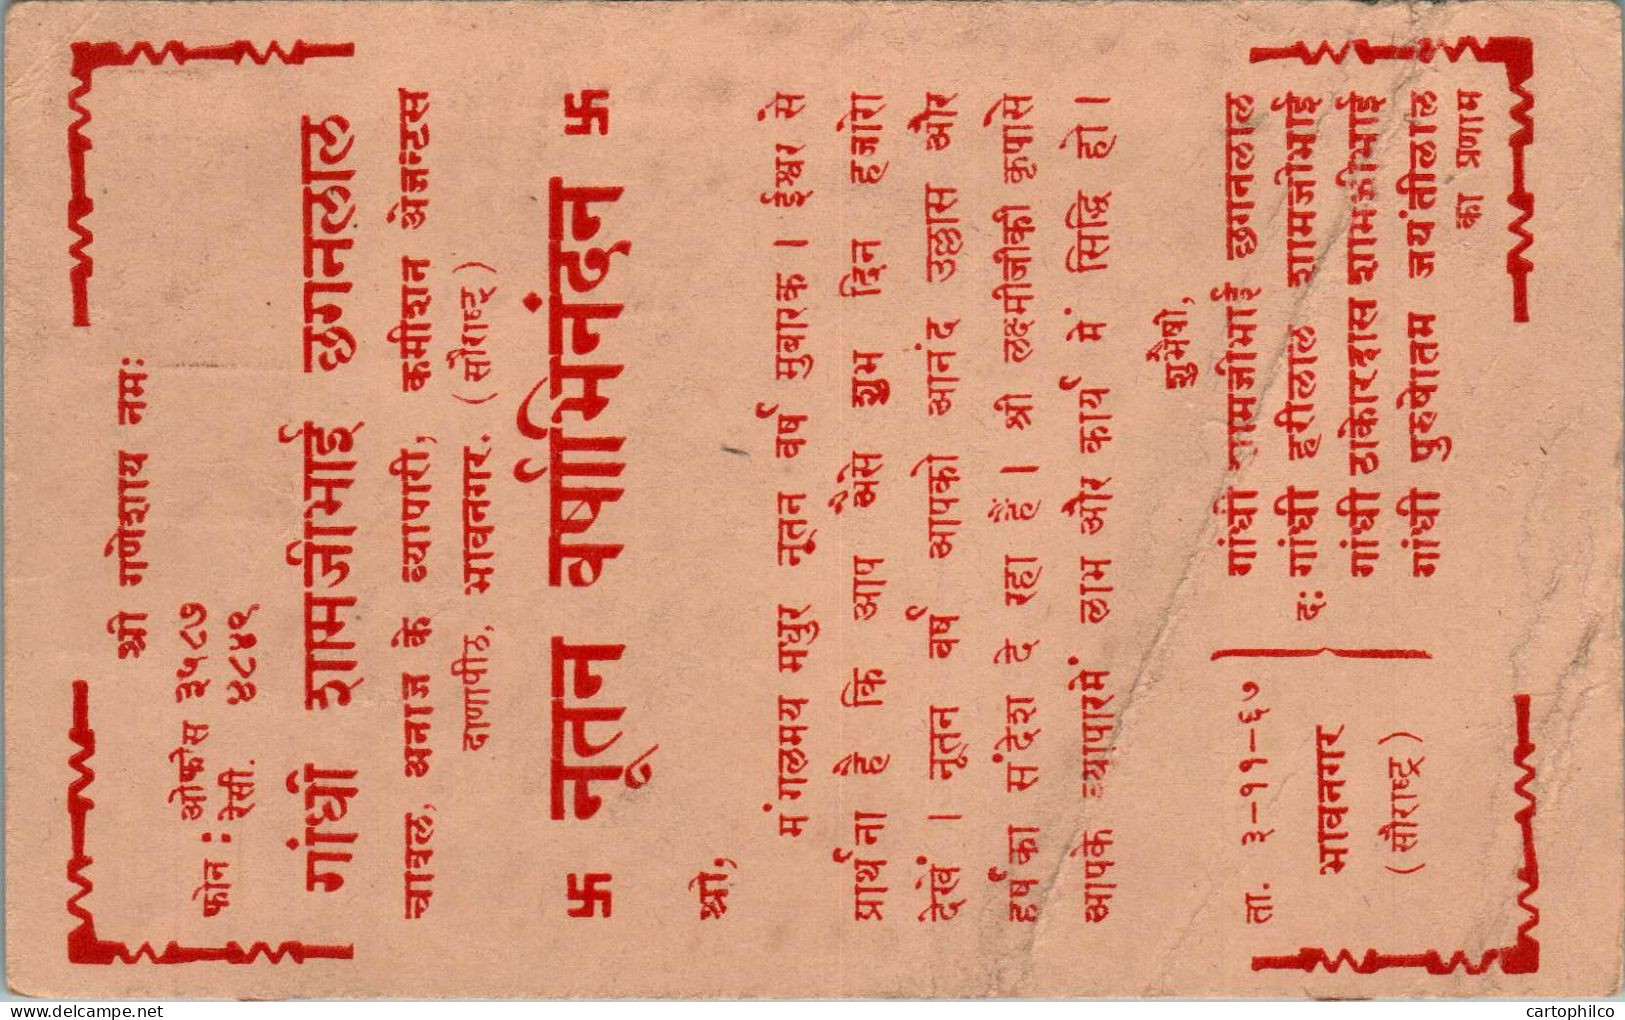 श्री गणेशाय नमः
फोन : ओफीस ३५८७
रेसी. ४८४९
गांधी शामजीभाई छगनलाल
चावल, अनाज के व्यापारी, कमीशन अेजंन्टस
दाणापीठ, भावनगर. (सौराष्ट्र)
卐 नूतन वर्षाभिनंदन 卐
श्री,
मंगलमय मधुर नूतन वर्ष मुबारक । ईश्वर से
प्रार्थना है कि आप अैसे शुभ दिन हजारो
देखें । नूतन वर्ष आपको आनंद उल्लास और
हर्षका संदेश दे रहा है । श्री लक्ष्मीजीकी कृपासे
आपके व्यापारमें लाभ और कार्य में सिद्धि हो ।
शुभैषी,
ता. ३-११-६७
भावनगर
(सौराष्ट्र)
गांधी शामजीभाई छगनलाल
दः गांधी हरीलाल शामजीभाई
गांधी ठाकोरदास शामजीभाई
गांधी पुरुषोतम जयंतीलाल
का प्रणाम
cartophilco